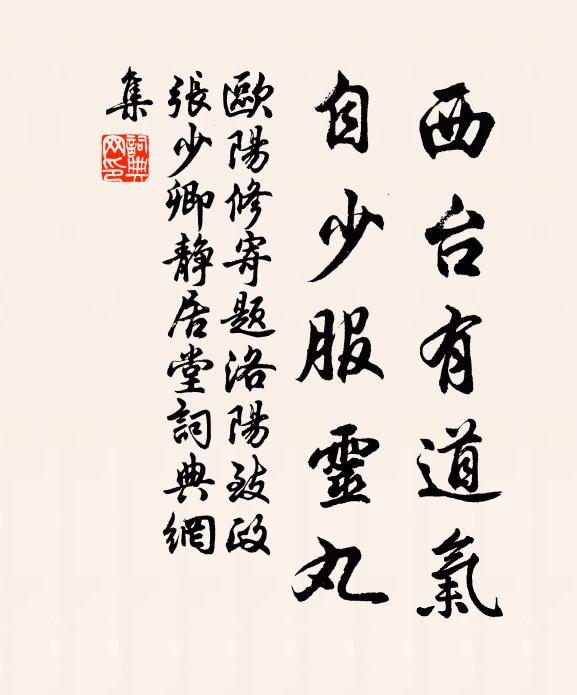 西台有道氣
自少服靈丸
歐陽修寄題洛陽致政
張少卿静居堂詞典網
集
詞典
网印